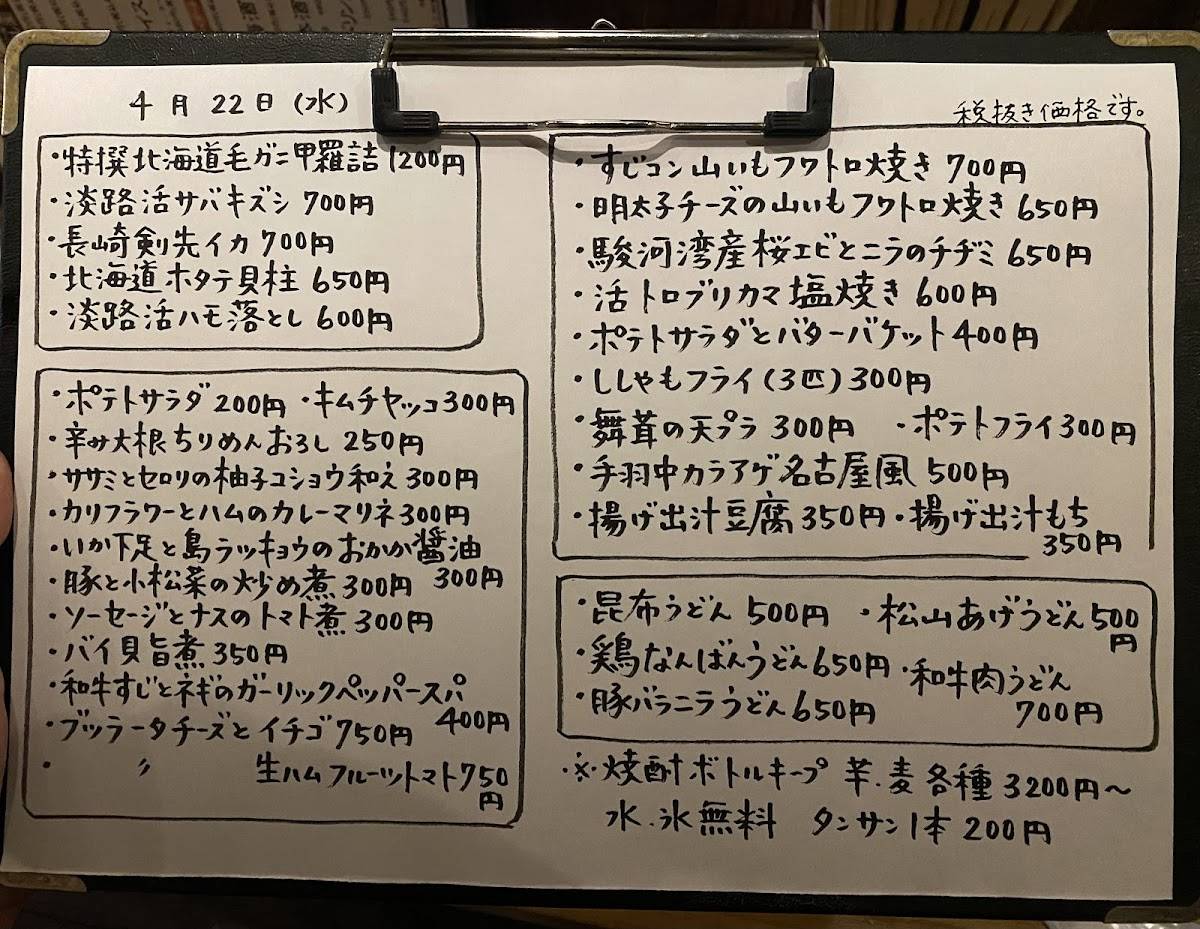 4月22日(水)
税抜き価格です。
・特撰北海道毛ガニ甲羅詰 1200円
・淡路活サバキズシ 700円
・長崎剣先イカ 700円
・北海道ホタテ貝柱 650円
・淡路活ハモ落とし 600円
・ポテトサラダ 200円 ・キムチヤッコ 300円
・辛み大根ちりめんおろし 250円
・ササミとセロリの柚子コショウ和え 300円
・カリフラワーとハムのカレーマリネ 300円
・いか下足と島ラッキョウのおかか醤油
300円
・豚と小松菜の炒め煮 300円
・ソーセージとナスのトマト煮 300円
・バイ貝旨煮 350円
・和牛すじとネギのガーリックペッパースパ
400円
・ブッラータチーズとイチゴ 750円
・ 〃 生ハムフルーツトマト 750
円
・すじコン山いもフワトロ焼き 700円
・明太子チーズの山いもフワトロ焼き 650円
・駿河湾産桜エビとニラのチヂミ 650円
・活トロブリカマ塩焼き 600円
・ポテトサラダとバターバケット 400円
・ししゃもフライ(3匹) 300円
・舞茸の天プラ 300円 ・ポテトフライ 300円
・手羽中カラアゲ名古屋風 500円
・揚げ出汁豆腐 350円 ・揚げ出汁もち
350円
・昆布うどん 500円 ・松山あげうどん 500
円
・鶏なんばんうどん 650円 ・和牛肉うどん
700円
・豚バラニラうどん 650円
・※焼酎ボトルキープ 芋.麦各種 3200円〜
水.氷無料 タンサン1本 200円